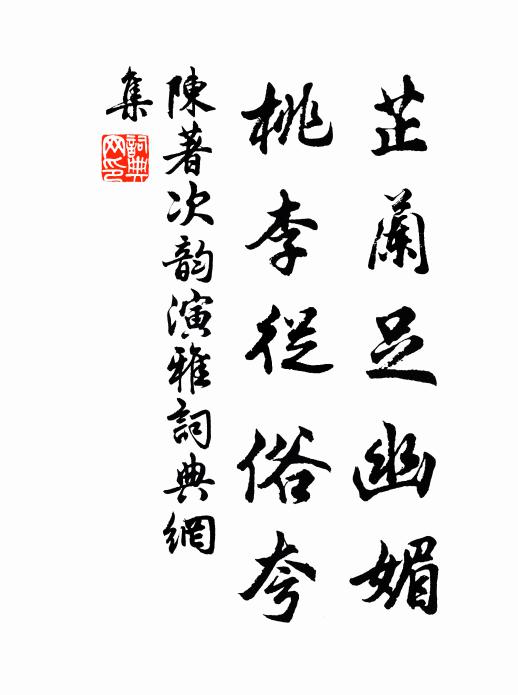 芷蘭足幽媚
桃李從俗夸
陳著次韵演雅詞典網
集
詞典網印